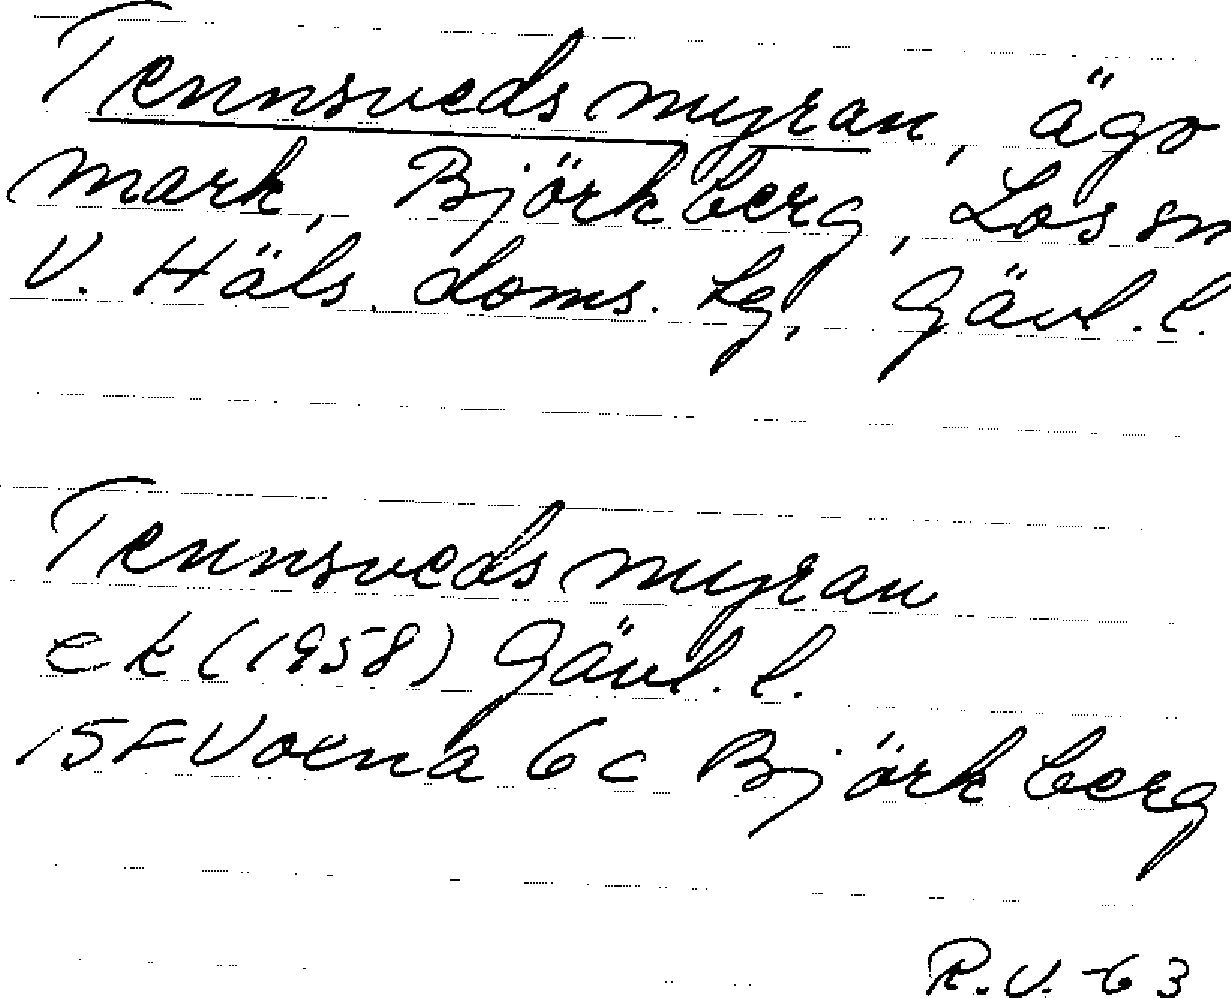 Tennsvedsmyran, ägo
mark, Björkberg, Los sn
V. Häls. doms. tg, Gävl. l.
Tennsvedsmyran
ek (1958) Gävl. l.
15F Voxna 6c Björkberg
R.V. -63